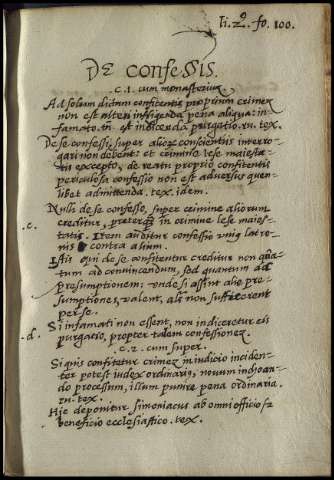 li. 2º. fo. 100.
DE confessis.
c. 1. cum monasteriuz
Ad solum dictum confitentis proprium crimez
non est alteri infligenda pena aliqua: in-
famato tn̄ est indicenda purgatio. ru. tex.
De se confessi, super alioꝝ conscientiis interro-
gari non debent: et crimine lese maiesta-
tis excepto, de reatu proprio confitentis
periculosa confessio non est adversus quen-
libet admittenda. tex. idem.
.c. Nulli de se confesso, super crimine aliorum
creditur, preterq̃ in crimine lese maies-
tatis. Item auditur confessio unius latro-
nis contra alium.
Istis qui de se confitentur creditur non quã-
tum ad convincendum, sed quantum ad
presumptionem: unde si assint alie pre-
sumptiones, valent, als̄ non sufficerent
per se.
.d. Si infamati non essent, non indiceretur eis
purgatio, propter talem confessionez.
c. 2. cum super.
Si quis confitetur crimez in iudicio inciden-
ter potest iudex ordinarius, novum inchoan-
do processum, illum punire pena ordinaria.
ru. tex.
Hic deponitur simoniacus ab omni officio et
beneficio ecclesiastico. tex.